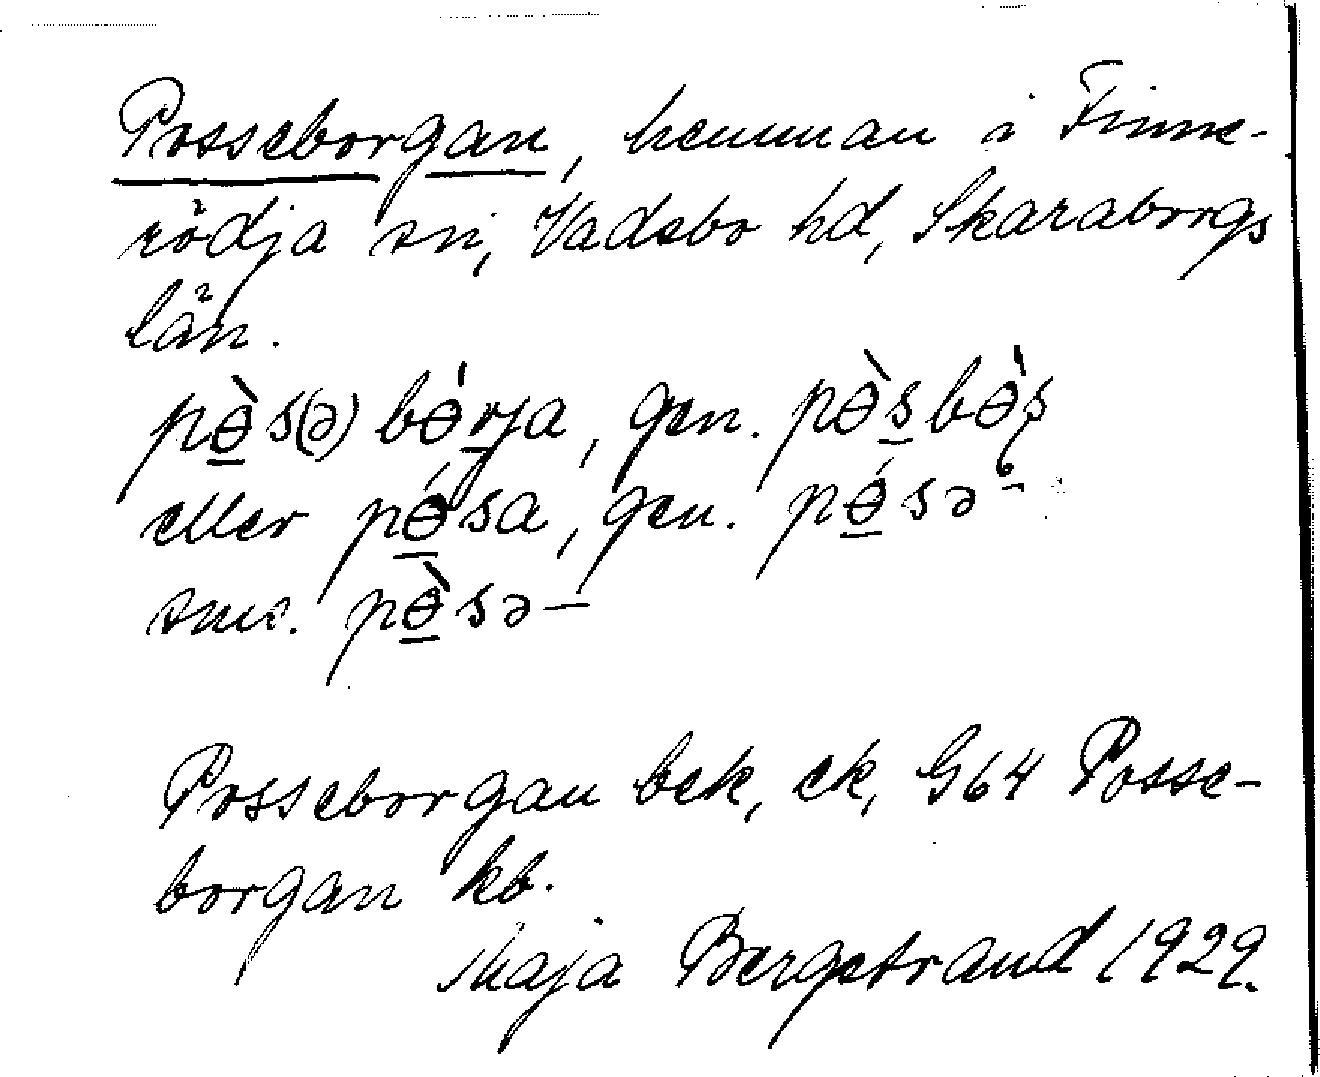 Posseborgan, hemman i Finne-
rödja sn, Vadsbo hd, Skaraborgs
län.
pɵ̀s(ə) bɵ́rja, gen. pɵ̀s bɵ̀ʂ
eller pɵ́sa, gen. pɵ́sə
sms. pɵ̀sə-
Posseborgan bek, ek, G64 Posse-
borgan kb.
Maja Bergstrand 1929.